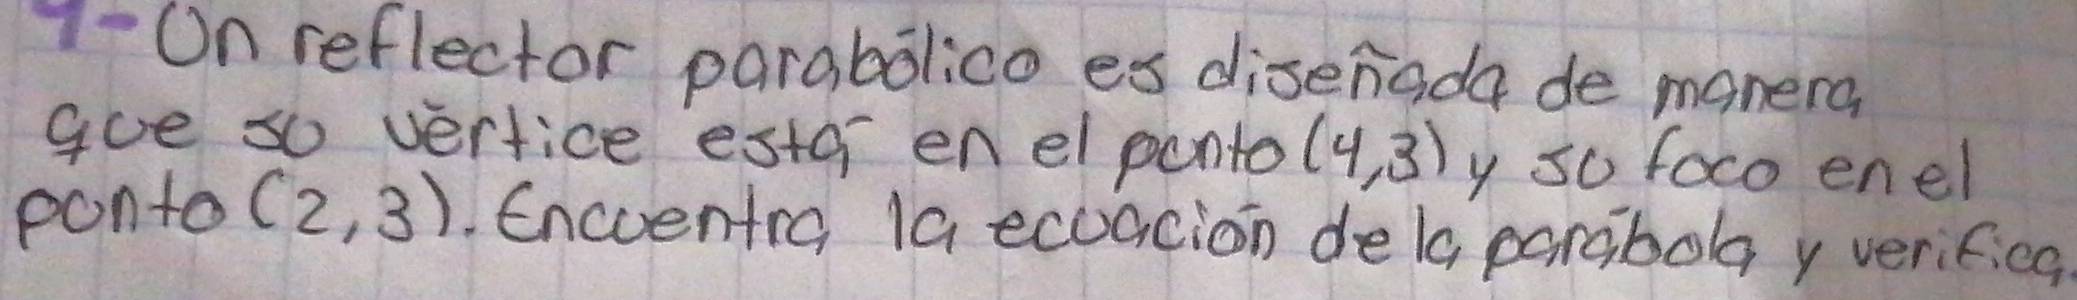 9-Un reflector parabólico es diseñada de manera
que su vértice está en el punto (4,3) y su foco en el
punto (2,3). Encuentra la ecuación de la parábola y verifica.